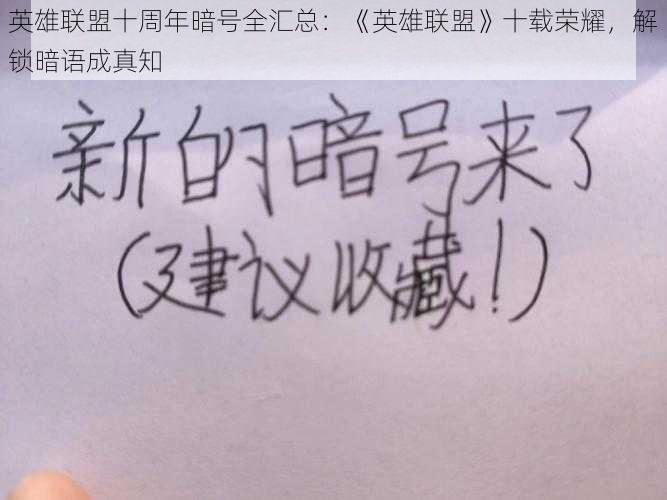 英雄联盟十周年暗号全汇总：《英雄联盟》十载荣耀，解
锁暗语成真知
新的暗号来了
(建议收藏!)